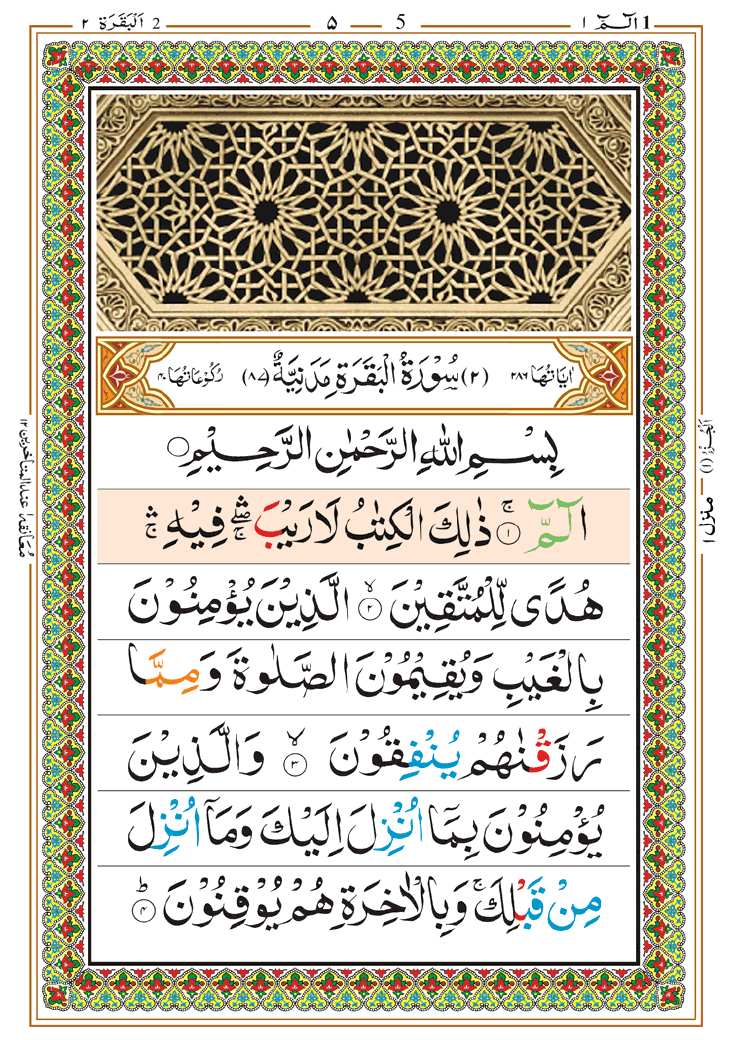 1 الٓمّٓ ١
5 — ۵
2 اَلْبَقَرَة ٢
اٰيَاتُهَا ٢٨٦ (٢) سُوْرَةُ الْبَقَرَةِ مَدَنِيَّةٌ (٨٧) رُكُوْعَاتُهَا ٤٠
بِسْمِ اللّٰهِ الرَّحْمٰنِ الرَّحِيْمِ ○
الٓمّٓ ۚ ١ ذٰلِكَ الْكِتٰبُ لَا رَيْبَ ۛۖ فِيْهِ ۛۚ
هُدًى لِّلْمُتَّقِيْنَ ۙ ٢ الَّذِيْنَ يُؤْمِنُوْنَ
بِالْغَيْبِ وَيُقِيْمُوْنَ الصَّلٰوةَ وَمِمَّا
رَزَقْنٰهُمْ يُنْفِقُوْنَ ۙ ٣ وَالَّذِيْنَ
يُؤْمِنُوْنَ بِمَآ اُنْزِلَ اِلَيْكَ وَمَآ اُنْزِلَ
مِنْ قَبْلِكَ ۚ وَبِالْاٰخِرَةِ هُمْ يُوْقِنُوْنَ ؕ ٤
اَلْجُزْءُ (١)
منزل ١
معانقة ١ عند المتأخرين ١٢